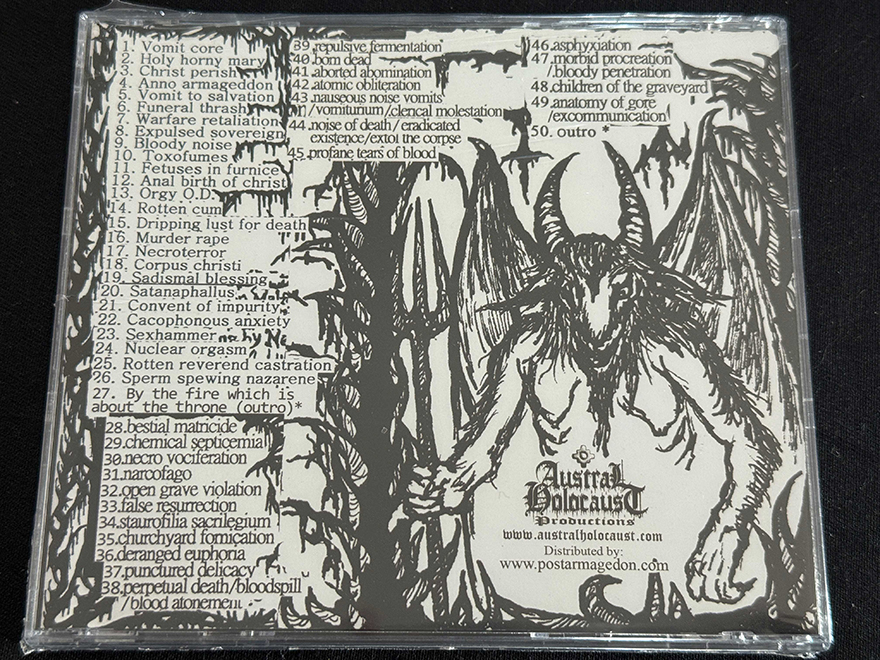 1. Vomit core
2. Holy horny mary
3. Christ perish
4. Anno armageddon
5. Vomit to salvation
6. Funeral thrash
7. Warfare retaliation
8. Expulsed sovereign
9. Bloody noise
10. Toxofumes
11. Fetuses in furnice
12. Anal birth of christ
13. Orgy O.D.
14. Rotten cum
15. Dripping lust for death
16. Murder rape
17. Necroterror
18. Corpus christi
19. Sadismal blessing
20. Satanaphallus
21. Convent of impurity
22. Cacophonous anxiety
23. Sexhammer
24. Nuclear orgasm
25. Rotten reverend castration
26. Sperm spewing nazarene
27. By the fire which is
about the throne (outro)*
28.bestial matricide
29.chemical septicemia
30.necro vociferation
31.narcofago
32.open grave violation
33.false resurrection
34.staurofilia sacrilegium
35.churchyard fornication
36.deranged euphoria
37.punctured delicacy
38.perpetual death/bloodspill
/blood atonement
39.repulsive fermentation
40.born dead
41.aborted abomination
42.atomic obliteration
43.nauseous noise vomits
/vomiturium/clerical molestation
44.noise of death/eradicated
existence/extol the corpse
45.profane tears of blood
46.asphyxiation
47.morbid procreation
/bloody penetration
48.children of the graveyard
49.anatomy of gore
/excommunication
50. outro *
Austral
Holocaust
Productions
www.australholocaust.com
Distributed by:
www.postarmagedon.com